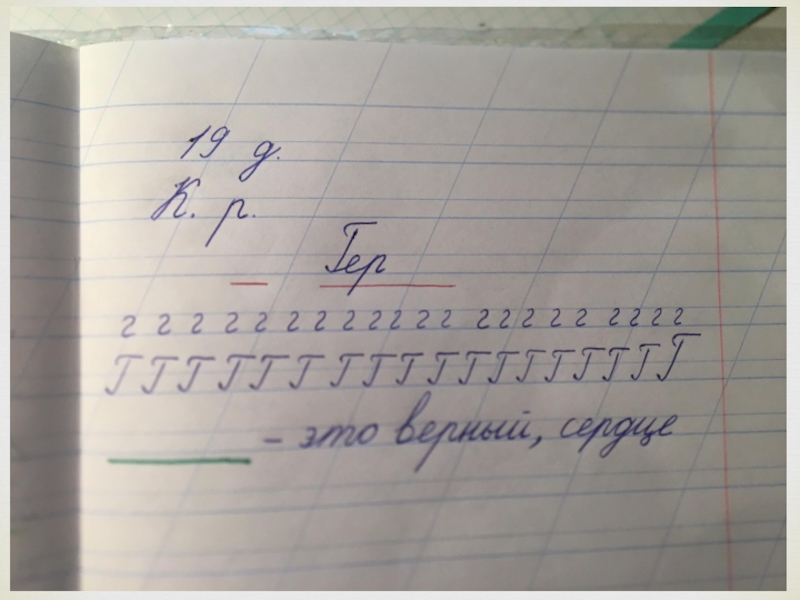 19 д.
К. р.
Гер
г г г г г г г г г г г г г г г г г г г г г
Г Г Г Г Г Г Г Г Г Г Г Г Г Г Г Г Г Г
– это верный, сердце